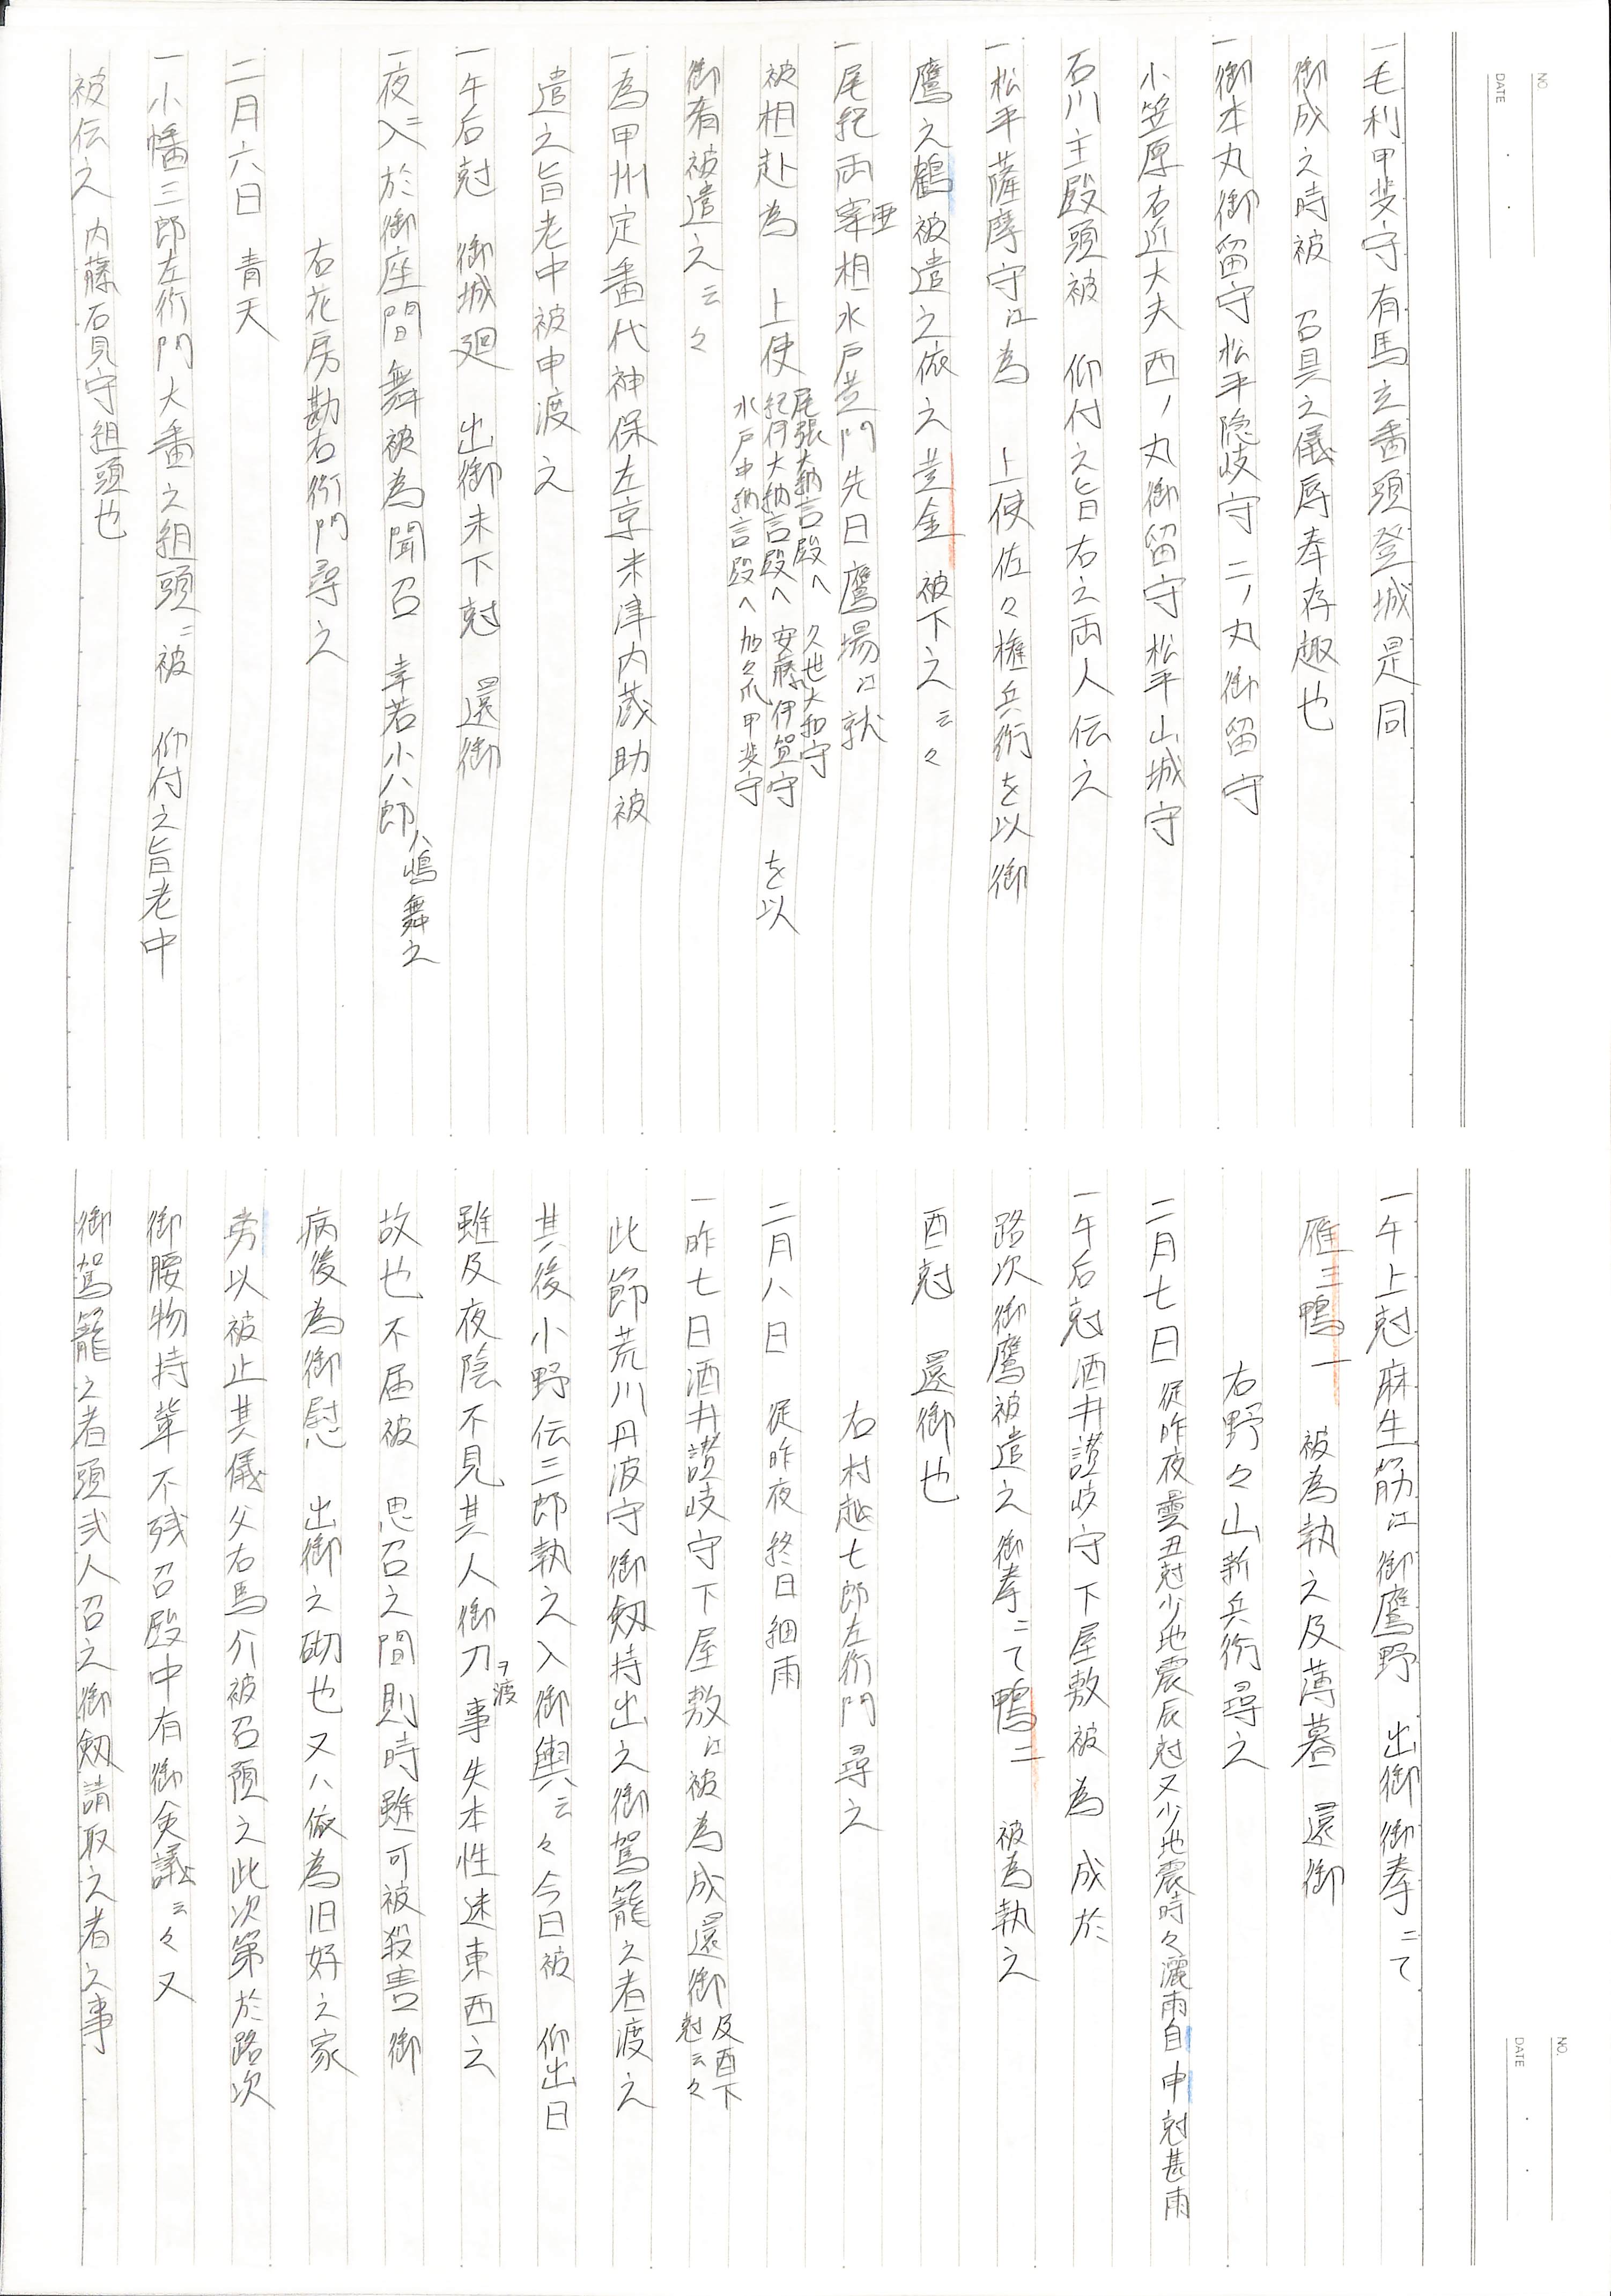 NO.
DATE
一毛利甲斐守有馬玄番頭登城是同
御成之時被 召具之儀辱奉存趣也
一御本丸御留守松平隠岐守二ノ丸御留守
小笠原右近大夫西ノ丸御留守松平山城守
石川主殿頭被 仰付之旨右之両人伝之
一松平薩摩守江為 上使佐々権兵衛を以御
鷹之鶴被遣之依之黄金 被下之云々
一尾紀両宰相水戸黄門先日鷹場江就
亜
被相赴為 上使
尾張大納言殿へ 久世大和守
紀伊大納言殿へ 安藤伊賀守
水戸中納言殿へ 加々爪甲斐守
を以
御肴被遣之云々
一為甲州定番代神保左京米津内蔵助被
遣之旨老中被申渡之
一午后尅 御城廻 出御未下尅 還御
一夜入ニ於御座間舞被為聞召 幸若小八郎八嶋舞之
右花房勘右衛門尋之
二月六日 青天
一小幡三郎左衛門大番之組頭ニ被 仰付之旨老中
被伝之 内藤石見守組頭也
NO.
DATE
一午上尅麻生筋江御鷹野 出御御拳ニて
雁三鴨一 被為執之及薄暮 還御
右野々山新兵衛尋之
二月七日 従昨夜曇丑尅少地震辰尅又少地震時々灑雨自申尅甚雨
一午后尅酒井讃岐守下屋敷被為 成於
路次御鷹被遣之御拳ニて鴨二 被為執之
酉尅 還御也
右村越七郎左衛門尋之
二月八日 従昨夜終日細雨
一昨七日酒井讃岐守下屋敷江被為成還御及酉下尅云々
此節荒川丹波守御剱持出之御駕籠之者渡之
其後小野伝三郎執之入御輿云々今日被 仰出日
雖及夜陰不見其人御刀ヲ渡事失本性迷東西之
故也不届被 思召之間則時雖可被殺害御
病後為御慰 出御之砌也又ハ依為旧好之家
旁以被止其儀父右馬介被召預之此次第於路次
御腰物持輩不残召殿中有御僉議云々又
御駕籠之者頭弐人召之御剱請取之者之事